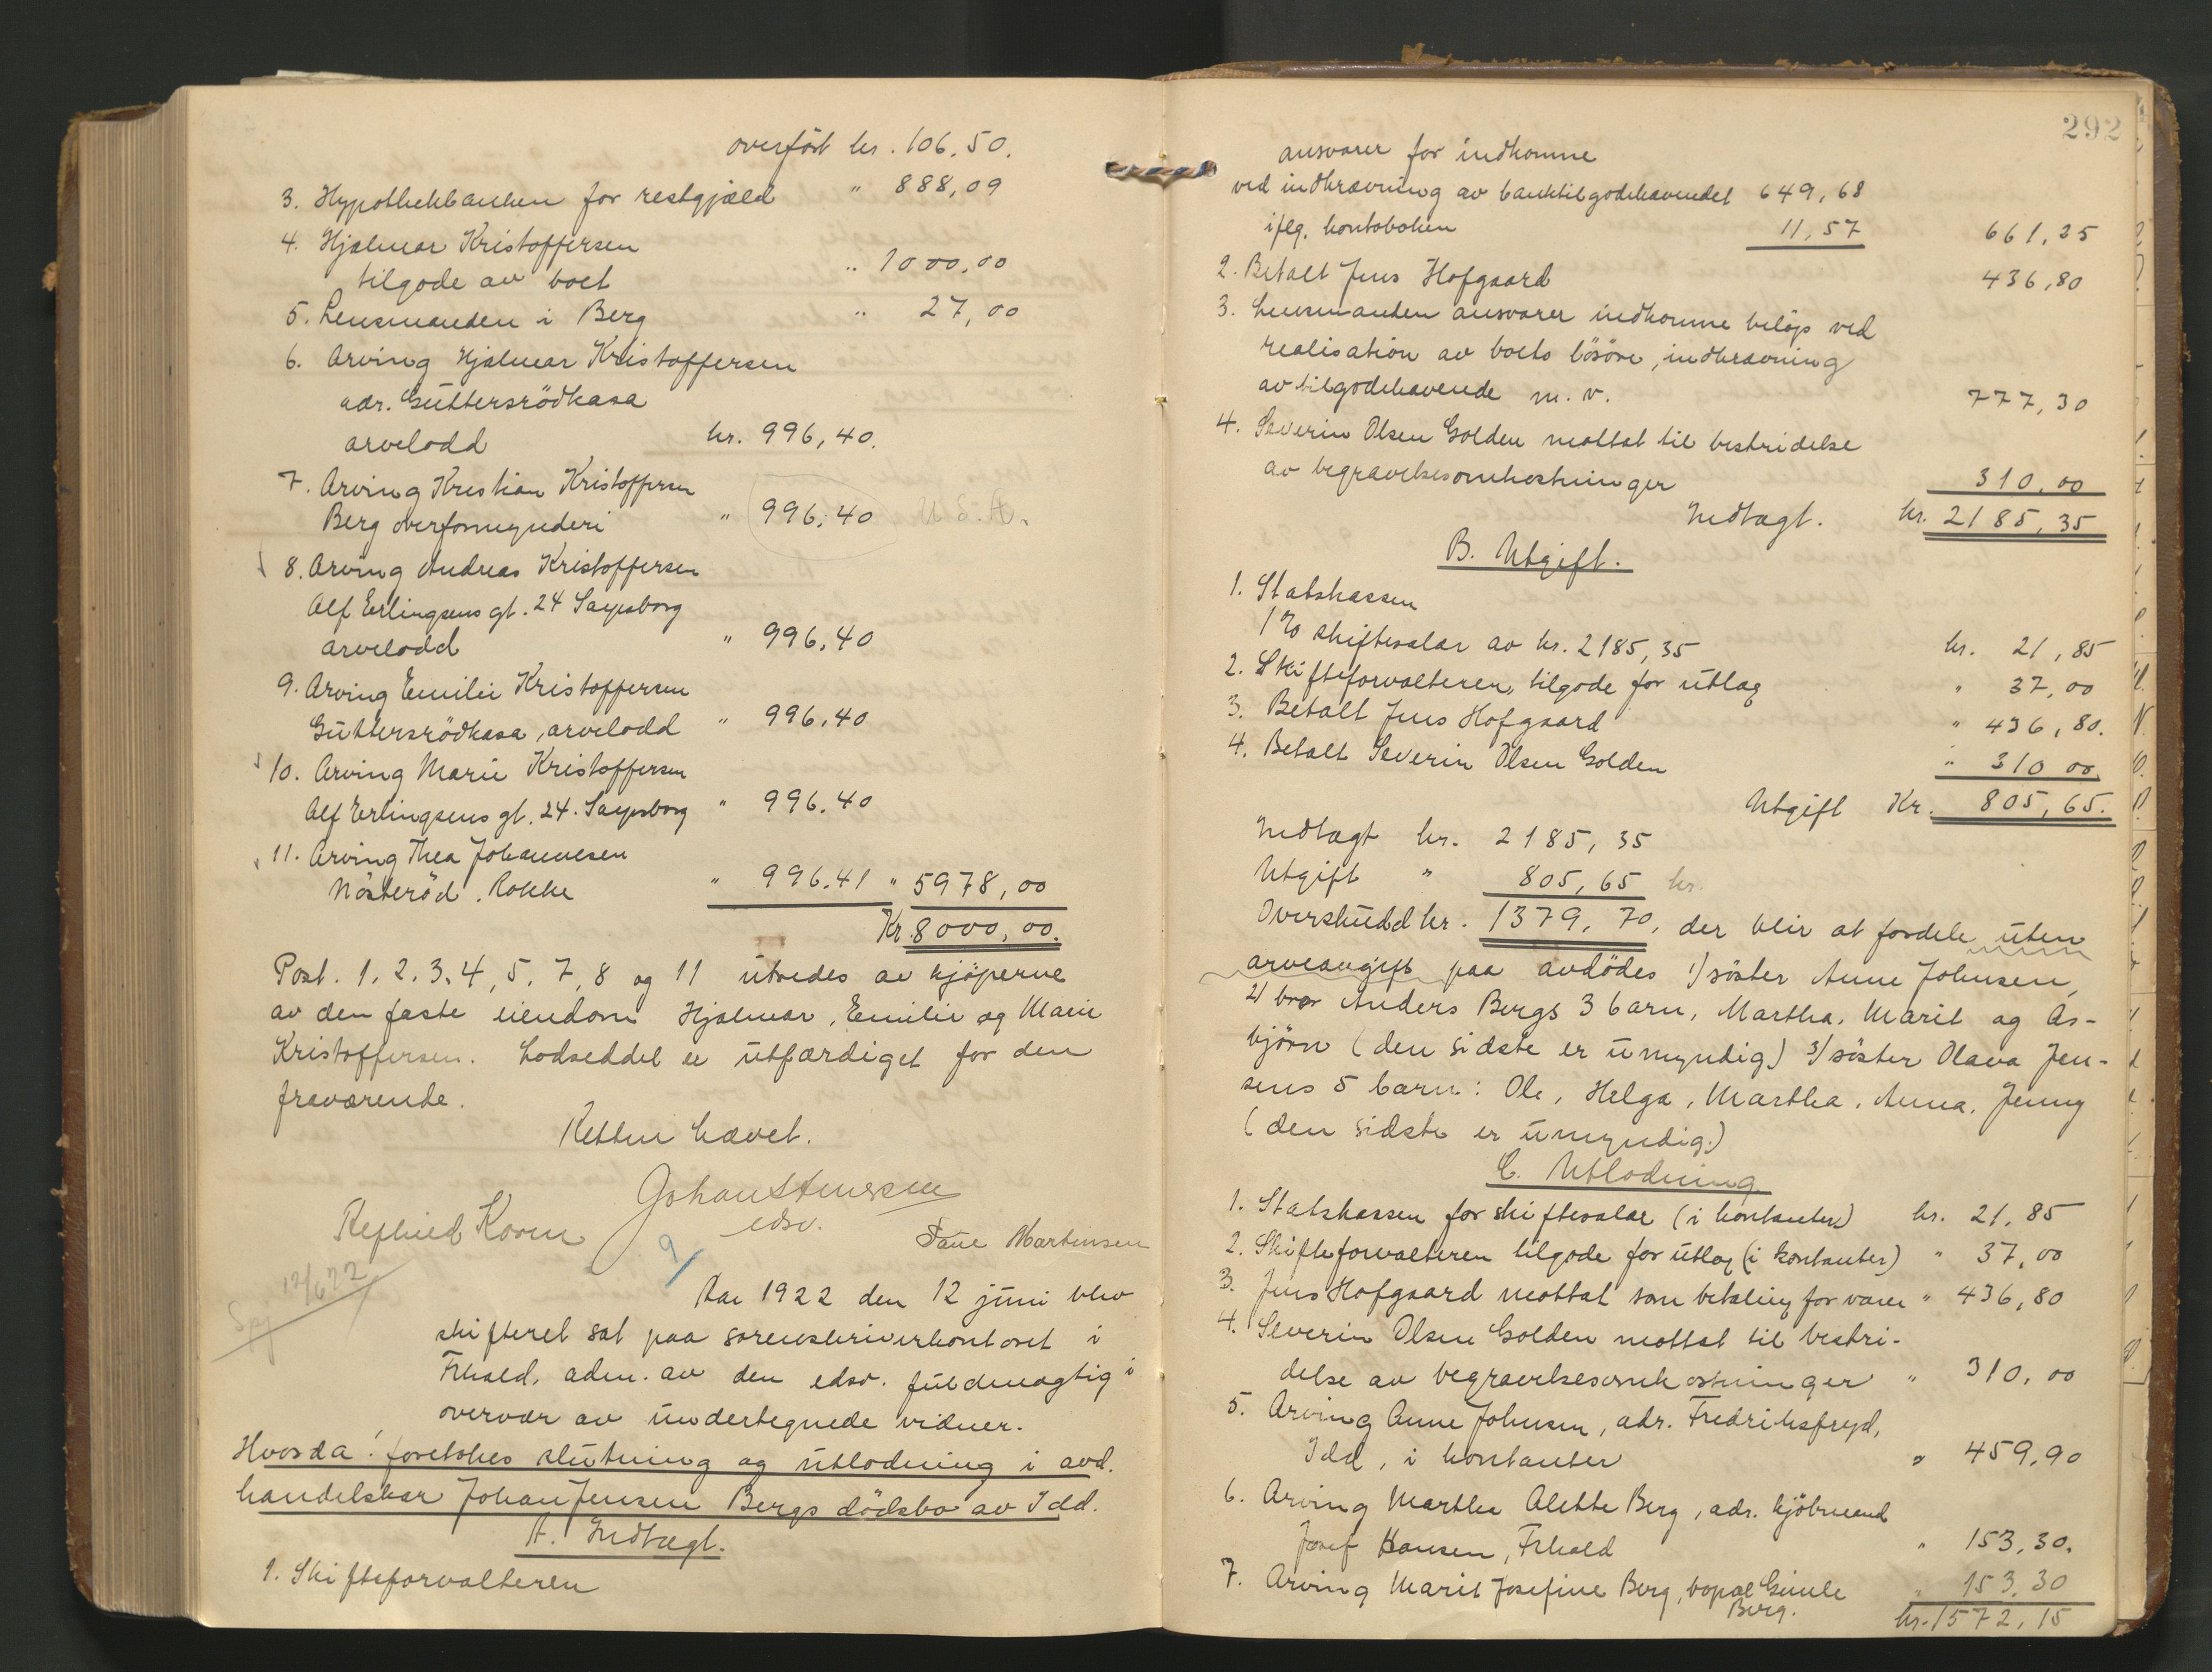 overført kr. 106.50.
3. Hypothekbanken for restgjæld " 888,09
4. Hjalmar Kristoffersen
tilgode av boet " 1000.00
5. Lensmanden i Berg " 27,00
6. Arving Hjalmar Kristoffersen
adr. Guttersrödkasa
arvelodd kr. 996,40.
7. Arving Kristian Kristoffersen
Berg overformynderi " 996.40 U.S.A.
8. Arving Andreas Kristoffersen
Alf Erlingsens gt. 24 Sarpsborg
arvelodd " 996.40
9. Arving Emilie Kristoffersen
Guttersrödkasa, arvelodd " 996.40
10. Arving Marie Kristoffersen
Alf Erlingsens gt. 24. Sarpsborg " 996.40
11. Arving Thea Johannesen
Nösteröd. Rokke " 996.41 " 5978,00
Kr. 8000,00.
Post. 1. 2. 3. 4, 5, 7, 8 og 11 utredes av kjöperne
av den faste eiendom Hjalmar, Emilie og Marie
Kristoffersen. Lodseddel er utfærdiget for den
fraværende.
Retten hævet.
Johan Stenersen
edsv.
Koren
Martinsen
9/
12/6 22
Spj
Aar 1922 den 12 juni blev
skifteret sat paa sorenskriverkontoret i
Frhald, adm. av den edsv. fuldmægtig i
overvær av undertegnede vidner.
Hvorda: foretokes slutning og utlodning i avd.
handelskar Johan Jensen Bergs dödsbo av Idd.
A. Indtægt.
1. Skifteforvalteren
292
ansvarer for indkomne
ved indkrævning av banktilgodehavendet 649,68
iflg. kontoboken 11,57 661,25
2. Betalt Jens Hofgaard 436,80
3. Lensmanden ansvarer indkomne belöp ved
realisation av boets lösöre, indkrævning
av tilgodehavende m. v. 777,30
4. Severin Olsen Golden mottat til bestridelse
av begravelsesomkostninger 310.00
Indtægt. kr. 2185,35
B. Utgift.
1. Statskassen
1% skiftesalær av kr. 2185,35 kr. 21,85
2. Skifteforvalteren, tilgode for utlæg " 37,00
3. Betalt Jens Hofgaard " 436,80.
4. Betalt Severin Olsen Golden " 310 00.
Utgift Kr. 805,65.
Indtægt kr. 2185,35
Utgift " 805,65 kr.
Overskudd kr. 1379,70, der blir at fordele uten
arveavgift paa avdödes 1/ söster Anne Johnsen,
2/ bror Anders Bergs 3 barn, Martha, Marit og As-
björn (den sidste er umyndig) 3/ söster Olava Jen-
sens 5 barn: Ole, Helga, Martha, Anna, Jenny
(den sidste er umyndig.)
C. Utlodning
1. Statskassen for skiftesalær (i kontanter) kr. 21,85
2. Skifteforvalteren tilgode for utlæg (i kontanter) " 37,00
3. Jens Hofgaard mottat som betaling for varer " 436,80
4. Severin Olsen Golden mottat til bestri-
delse av begravelsesomkostninger " 310,00
5. Arving Anne Johnsen, adr. Fredriksfryd,
Idd, i kontanter " 459,90
6. Arving Martha Alette Berg, adr. kjöbmand
Josef Hansen, Frhald " 153,30.
7. Arving Marit Josefine Berg, bopæl Gimle
Berg. " 153,30
kr. 1572,15